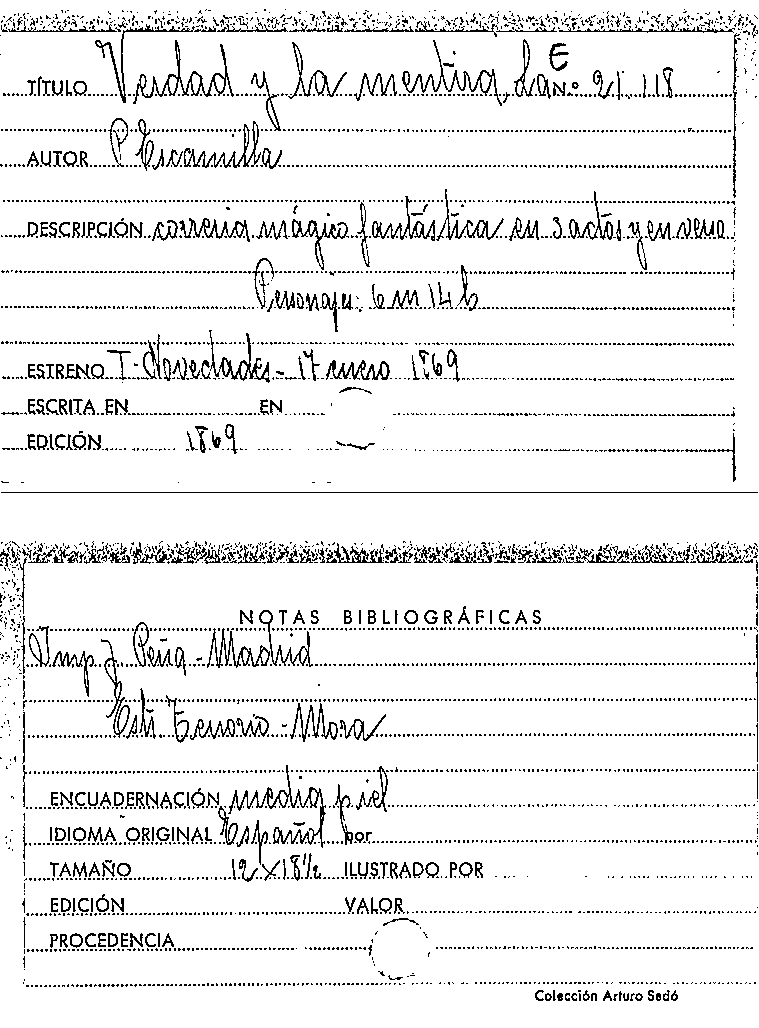 E
TÍTULO Verdad y la mentira, La N.º 21.118
AUTOR P Escamilla
DESCRIPCIÓN correria mágico fantástica en 3 actos y en verso
Personajes: 6 m 14 h
ESTRENO T- Novedades - 17 enero 1869
ESCRITA EN EN
EDICIÓN 1869
NOTAS BIBLIOGRÁFICAS
Imp J. Peña - Madrid
Estr. Tenorio - Mora
ENCUADERNACIÓN media piel
IDIOMA ORIGINAL Español por
TAMAÑO 12 x 18½ ILUSTRADO POR
EDICIÓN VALOR
PROCEDENCIA
Colección Arturo Sedó